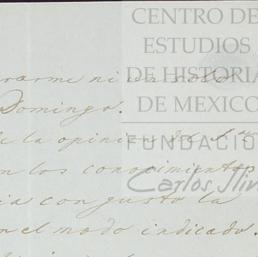 CENTRO DE
ESTUDIOS
DE HISTORIA
DE MEXICO
FUNDACIÓ
Carlos Sli
ni un solo
Domingo.
de la opinion de
en los conocimientos
con gusto la
en el modo indicado.